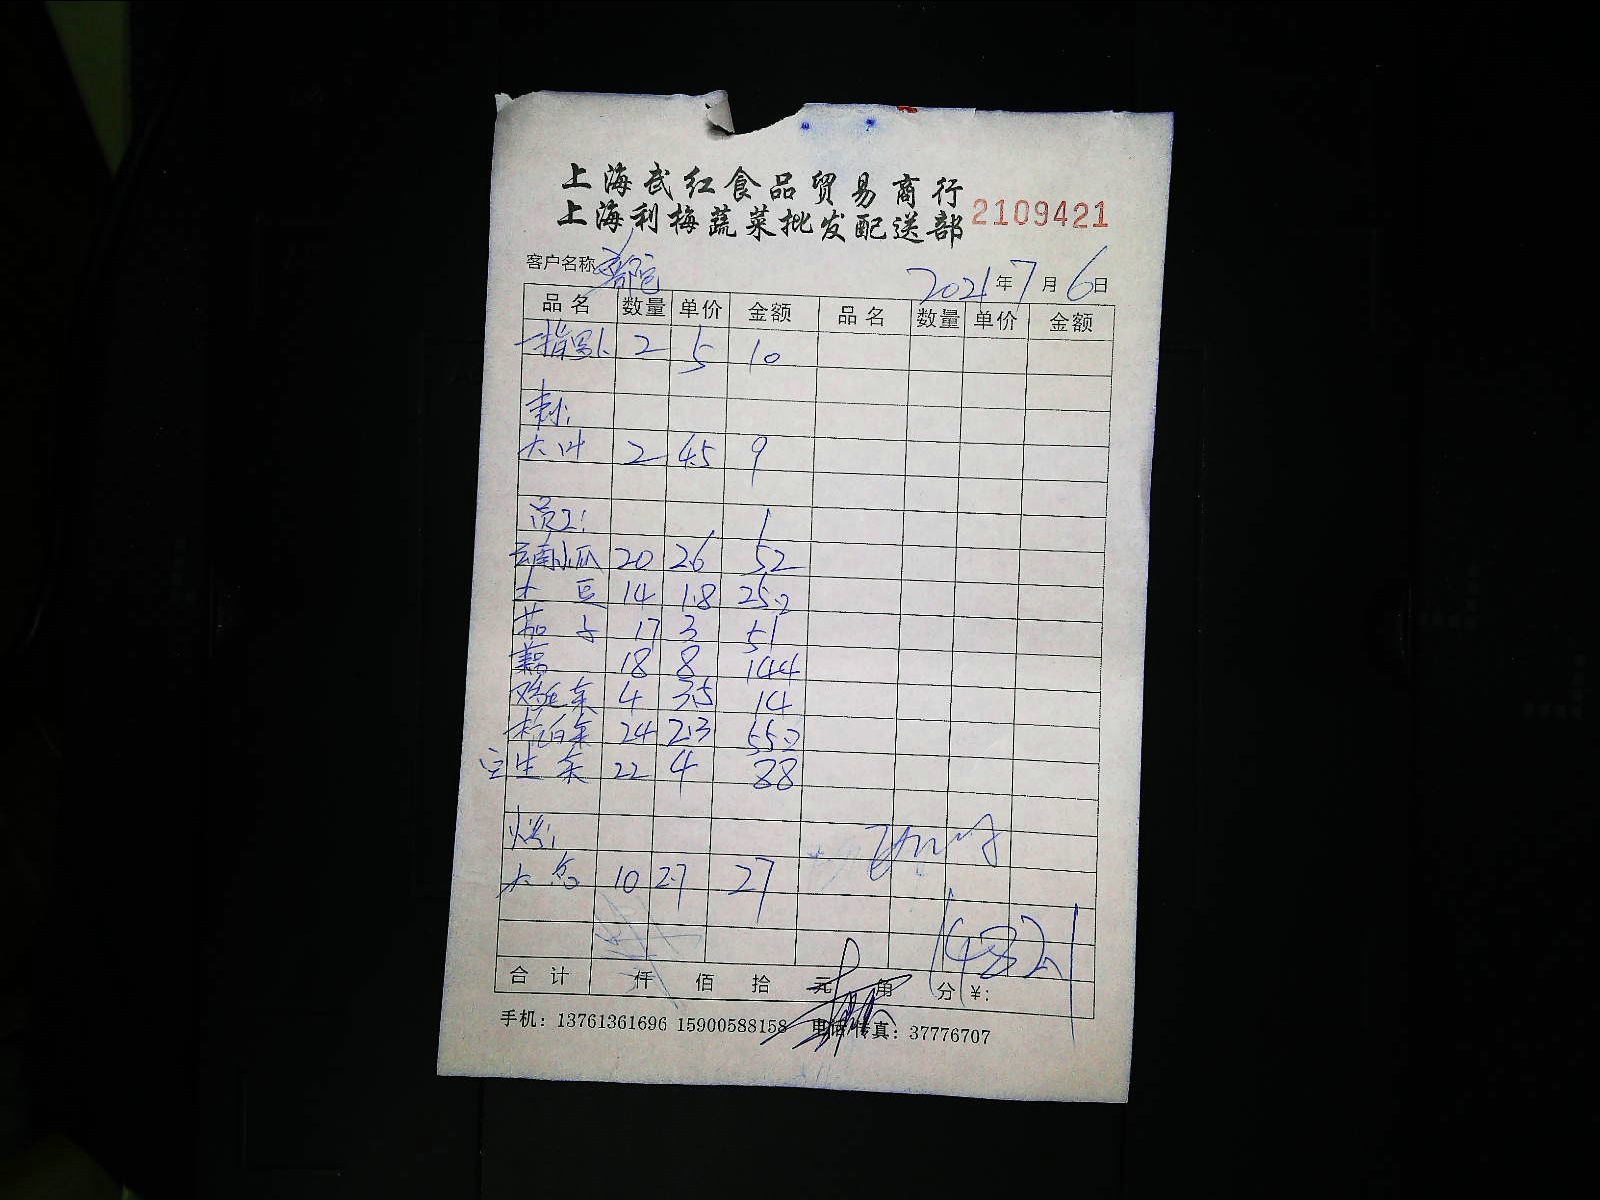 上海武红食品贸易商行
上海利梅蔬菜批发配送部 2109421
客户名称 2021年7月6日
品名 数量 单价 金额 品名 数量 单价 金额
2 5 10
大叶 2 4.5 9
员工:
云南小瓜 20 2.6 52
土豆 14 1.8 25.2
茄子 17 3 51
藕 18 8 144
鸡毛菜 4 3.5 14
杭白菜 24 2.3 55.2
生菜 22 4 88
大葱 10 2.7 27
合计 仟 佰 拾 元 角 分 ¥:
手机: 13761361696 15900588158 电话/传真: 37776707